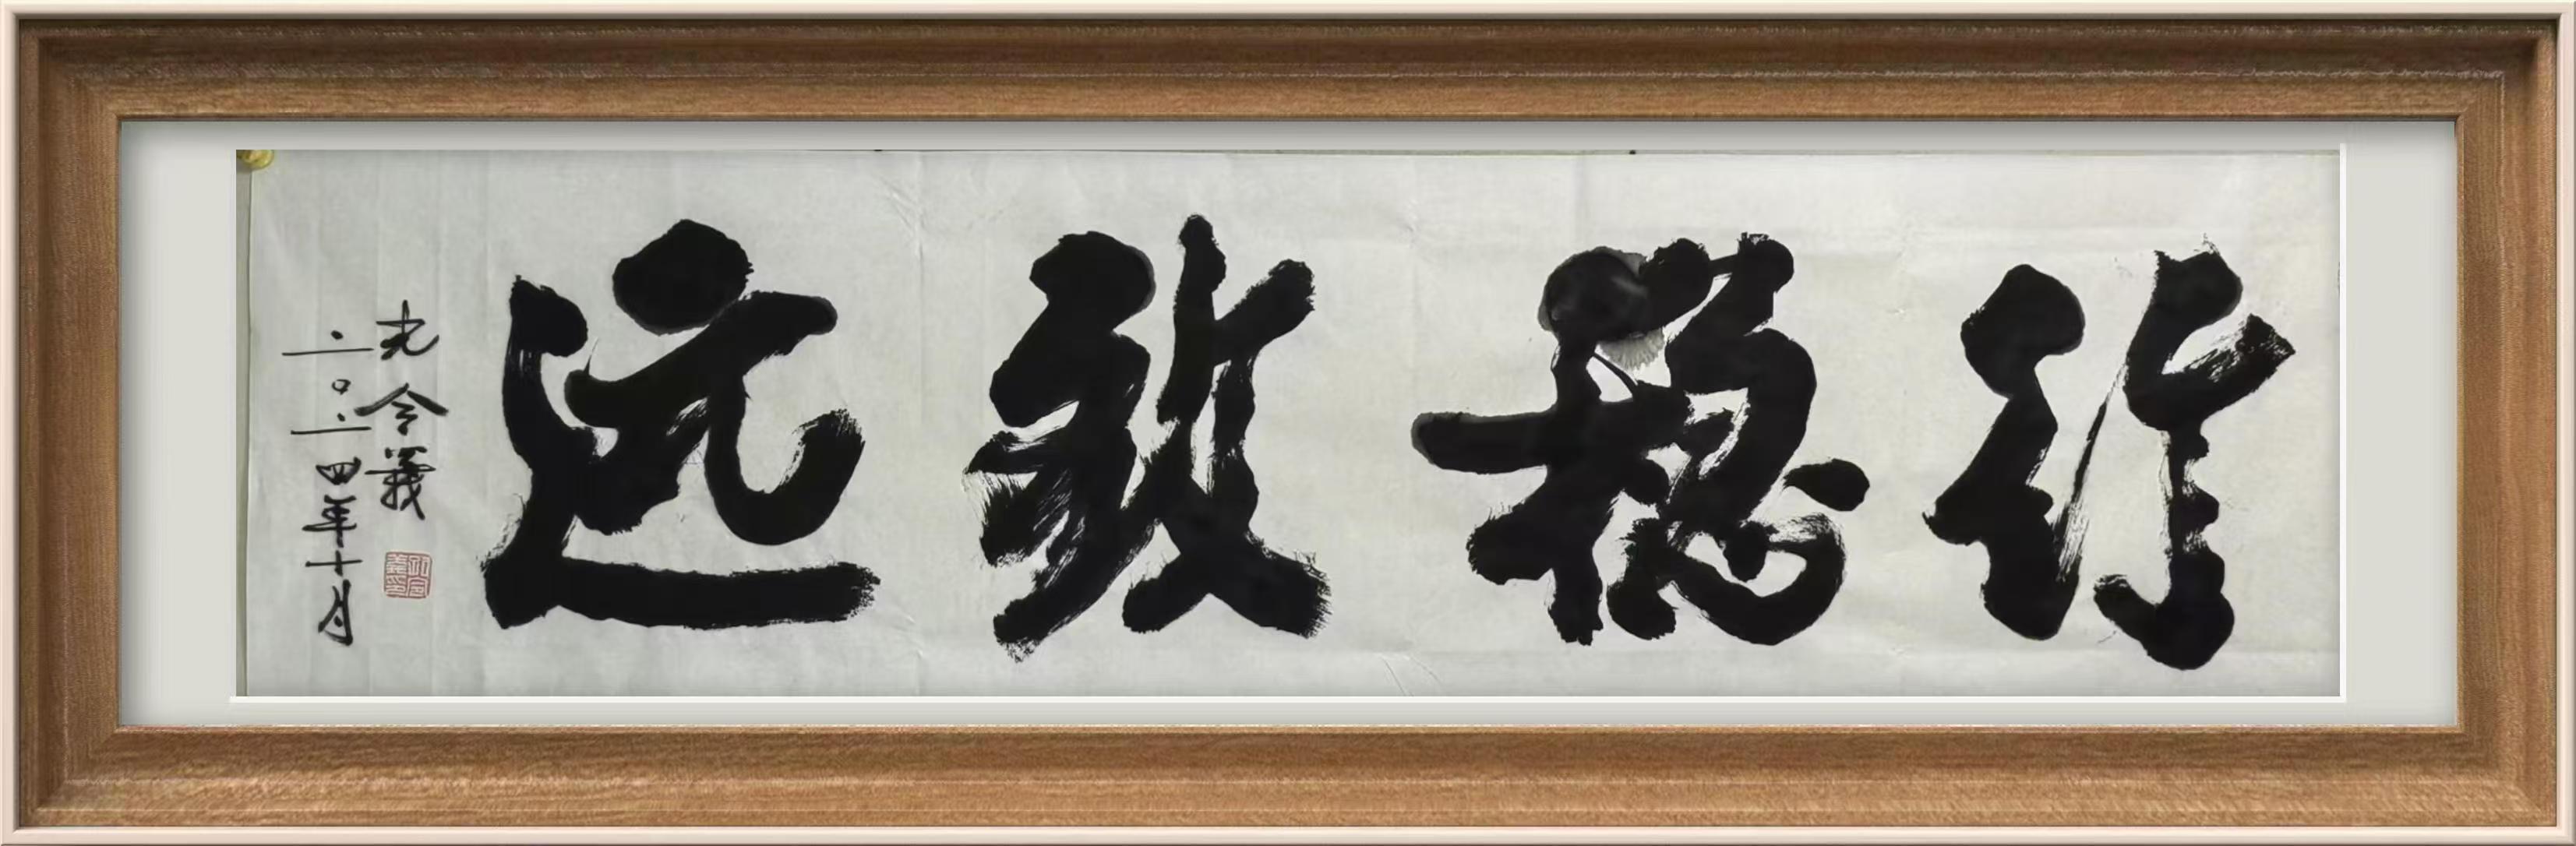 行稳致远
令義
二〇二四年十月